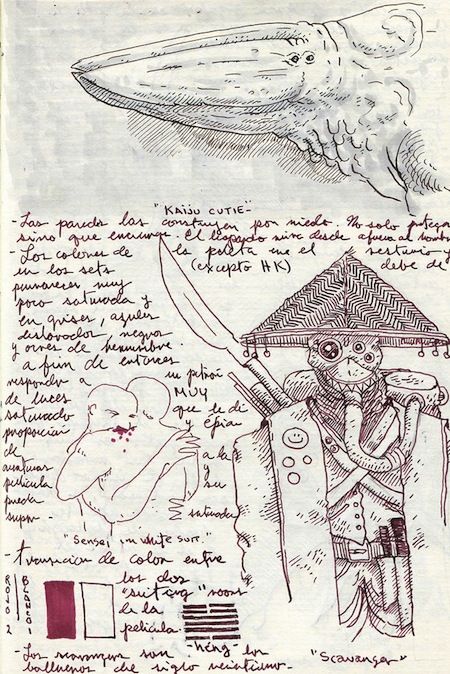 "KAIJU CUTIE"-
- Las paredes las construyen por miedo. No solo protegen
sino que encierran. El legado mira desde afuera al hombre
- Los colores de la paleta en el vestuario y
en los sets (excepto HK) debe de
permanecer muy
poco saturada y
en grises, azules
deslavados, negros
y ocres de herrumbre
a fin de entonces
responder a un patrón
de luces MUY
saturado que le dé
proporción y épica
de a la
aventuras y
película su
pueda saturada
"Sensei in white suit."
- transición de color entre
los dos
"suiting" rooms
de la
película.
ROJO 2
BLANCO 1
- héng
- Los scavangers son los
balleneros del siglo veintiuno-
"Scavanger"